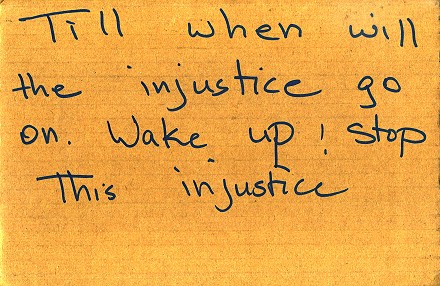 Till when will
the injustice go
on. Wake up! stop
This injustice